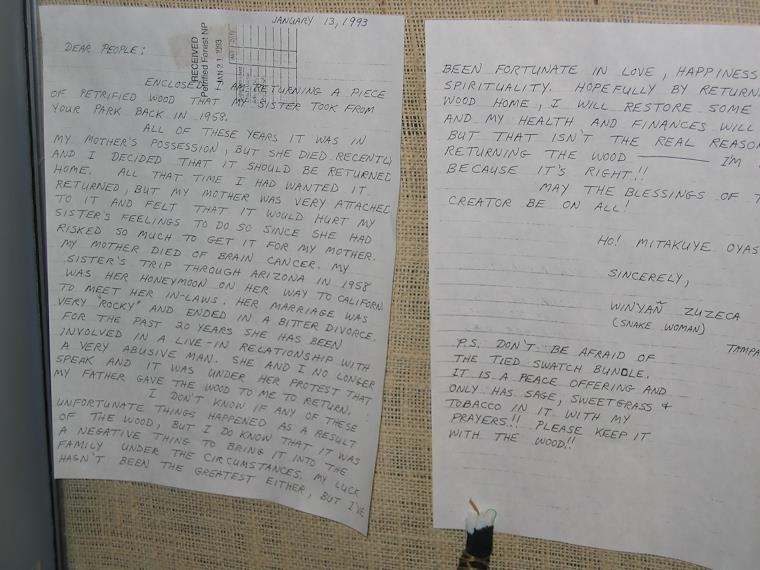 JANUARY 13, 1993
RECEIVED
Petrified Forest NP
JAN 21 1993
DEAR PEOPLE:
ENCLOSED I AM RETURNING A PIECE
OF PETRIFIED WOOD THAT MY SISTER TOOK FROM
YOUR PARK BACK IN 1958.
ALL OF THESE YEARS IT WAS IN
MY MOTHER'S POSSESSION, BUT SHE DIED RECENTLY
AND I DECIDED THAT IT SHOULD BE RETURNED
HOME. ALL THAT TIME I HAD WANTED IT
RETURNED, BUT MY MOTHER WAS VERY ATTACHED
TO IT AND FELT THAT IT WOULD HURT MY
SISTER'S FEELINGS TO DO SO SINCE SHE HAD
RISKED SO MUCH TO GET IT FOR MY MOTHER.
MY MOTHER DIED OF BRAIN CANCER. MY
SISTER'S TRIP THROUGH ARIZONA IN 1958
WAS HER HONEYMOON ON HER WAY TO CALIFORN
TO MEET HER IN-LAWS. HER MARRIAGE WAS
VERY "ROCKY" AND ENDED IN A BITTER DIVORCE.
FOR THE PAST 20 YEARS SHE HAS BEEN
INVOLVED IN A LIVE-IN RELATIONSHIP WITH
A VERY ABUSIVE MAN. SHE AND I NO LONGER
SPEAK AND IT WAS UNDER HER PROTEST THAT
MY FATHER GAVE THE WOOD TO ME TO RETURN.
I DON'T KNOW IF ANY OF THESE
UNFORTUNATE THINGS HAPPENED AS A RESULT
OF THE WOOD, BUT I DO KNOW THAT IT WAS
A NEGATIVE THING TO BRING IT INTO THE
FAMILY UNDER THE CIRCUMSTANCES. MY LUCK
HASN'T BEEN THE GREATEST EITHER, BUT I'VE
BEEN FORTUNATE IN LOVE, HAPPINESS
SPIRITUALITY. HOPEFULLY BY RETURN
WOOD HOME, I WILL RESTORE SOME
AND MY HEALTH AND FINANCES WILL
BUT THAT ISN'T THE REAL REASO
RETURNING THE WOOD — I'M
BECAUSE IT'S RIGHT!!
MAY THE BLESSINGS OF T
CREATOR BE ON ALL!
HO! MITAKUYE OYAS
SINCERELY,
WINYAÑ ZUZECA
(SNAKE WOMAN)
TAMPA
P.S. DON'T BE AFRAID OF
THE TIED SWATCH BUNDLE.
IT IS A PEACE OFFERING AND
ONLY HAS SAGE, SWEETGRASS &
TOBACCO IN IT WITH MY
PRAYERS!! PLEASE KEEP IT
WITH THE WOOD!!